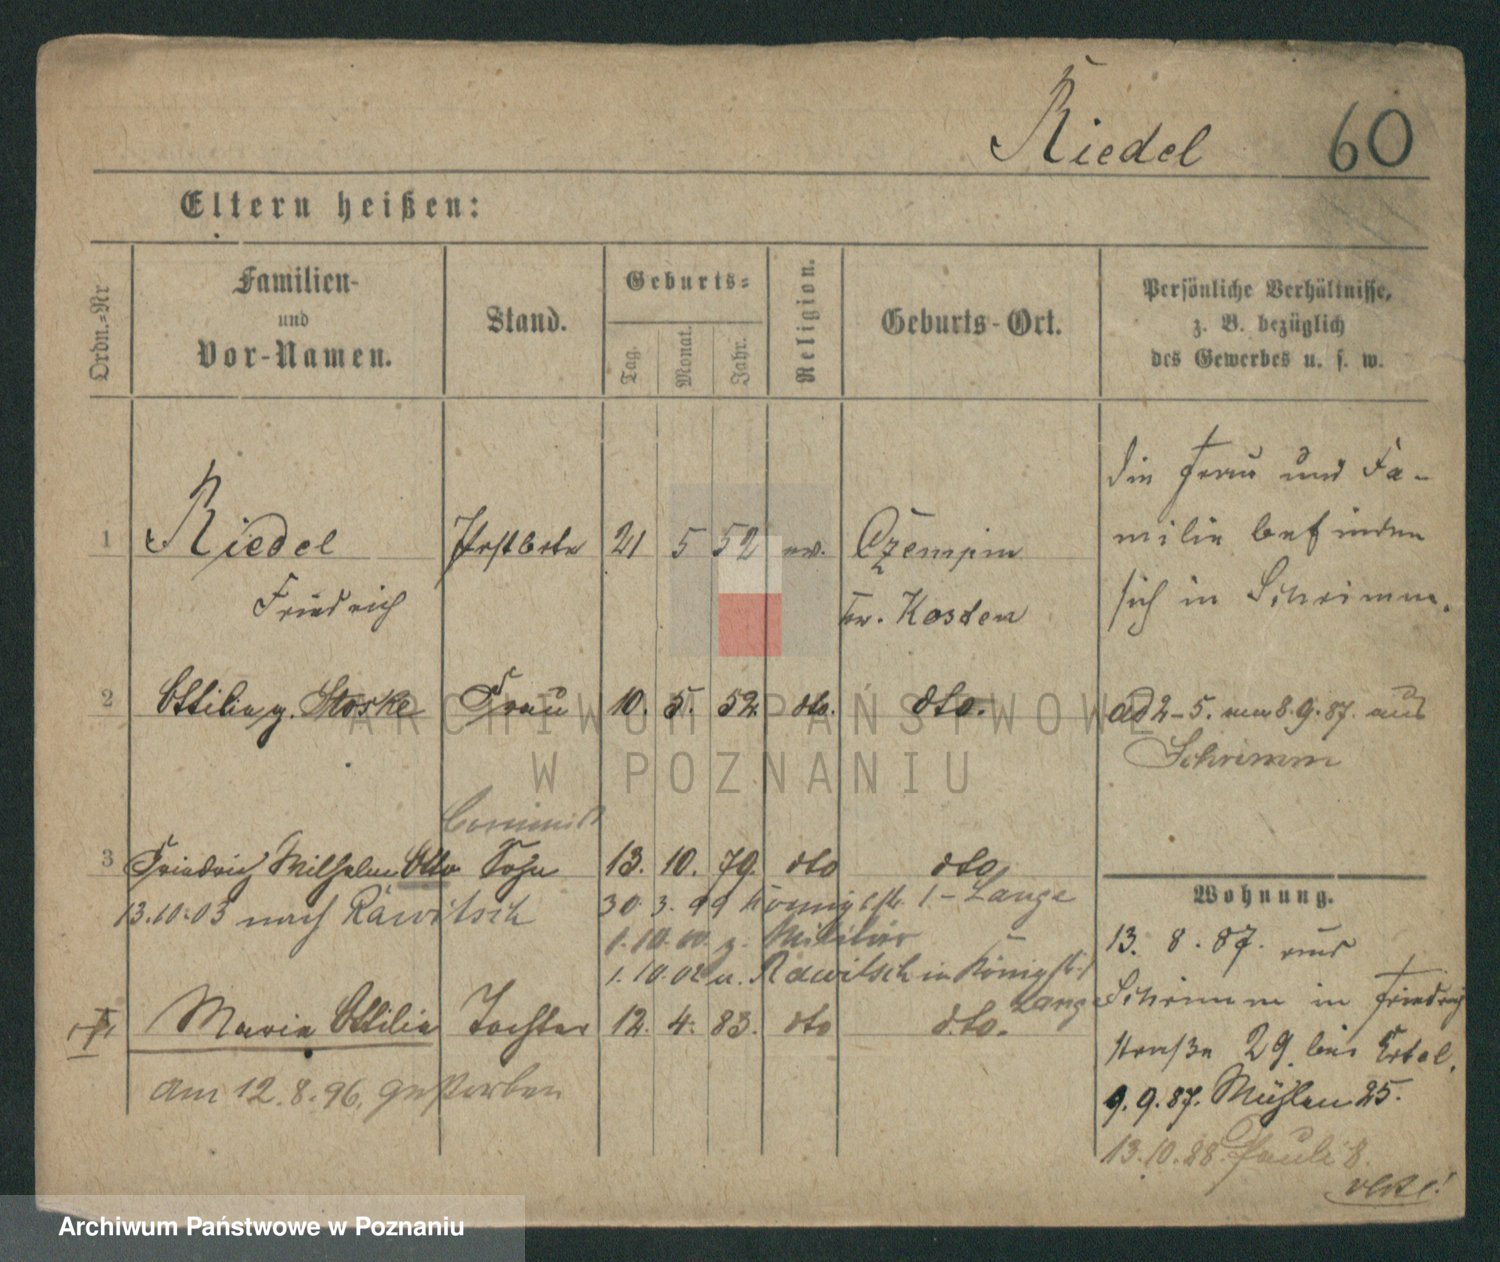 Riedel 60
Eltern heißen:
Ordn.-Nr
Familien-
und
Vor-Namen.
Stand.
Geburts-
Tag.
Monat.
Jahr.
Religion.
Geburts-Ort.
Persönliche Verhältnisse,
z. B. bezüglich
des Gewerbes u. s. w.
1 Riedel Postbote 21 5 52 ev. Czempin
Friedrich Kr. Kosten
die Frau und Fa-
milie befinden
sich in Schrimm.
2 Ottilie g. Stoske Frau 10. 5. 52. dto. dto.
ad 2-5. am 8.9.87. aus
Schrimm
3 Friedrich Wilhelm Otto Sohn 13. 10. 79. dto dto
13.10.03 nach Rawitsch 30. 3. 99 Königstr. 1 - Lange
1.10.00 z. Militär
1.10.02 v. Rawitsch in Königstr. 1
Lange
Marie Ottilie Tochter 12. 4. 83. dto dto.
am 12.8.96. gestorben
Wohnung.
13. 8. 87. aus
Schrimm in Friedrich
straße 29. bei Ertel.
9.9.87. Mühlen 25.
13.10.88. Pauli 8.
ARCHIWUM PAŃSTWOWE
W POZNANIU
Archiwum Państwowe w Poznaniu